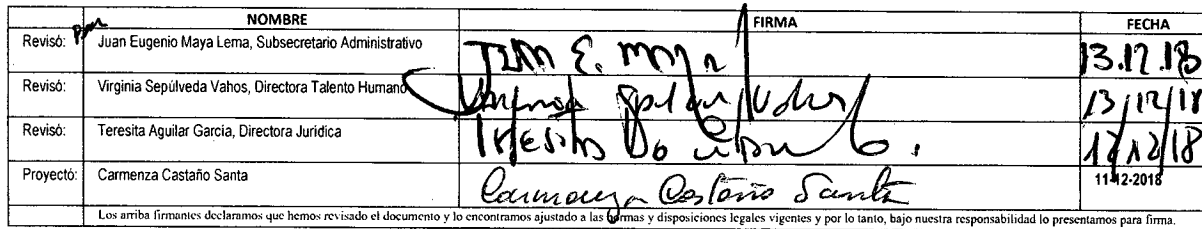 NOMBRE FIRMA FECHA
Revisó: Juan Eugenio Maya Lema, Subsecretario Administrativo JUAN E. MAYA 13.12.18
Revisó: Virginia Sepúlveda Vahos, Directora Talento Humano 13/12/18
Revisó: Teresita Aguilar García, Directora Jurídica Teresita 12/12/18
Proyectó: Carmenza Castaño Santa Carmenza Castaño Santa 11-12-2018
Los arriba firmantes declaramos que hemos revisado el documento y lo encontramos ajustado a las normas y disposiciones legales vigentes y por lo tanto, bajo nuestra responsabilidad lo presentamos para firma.